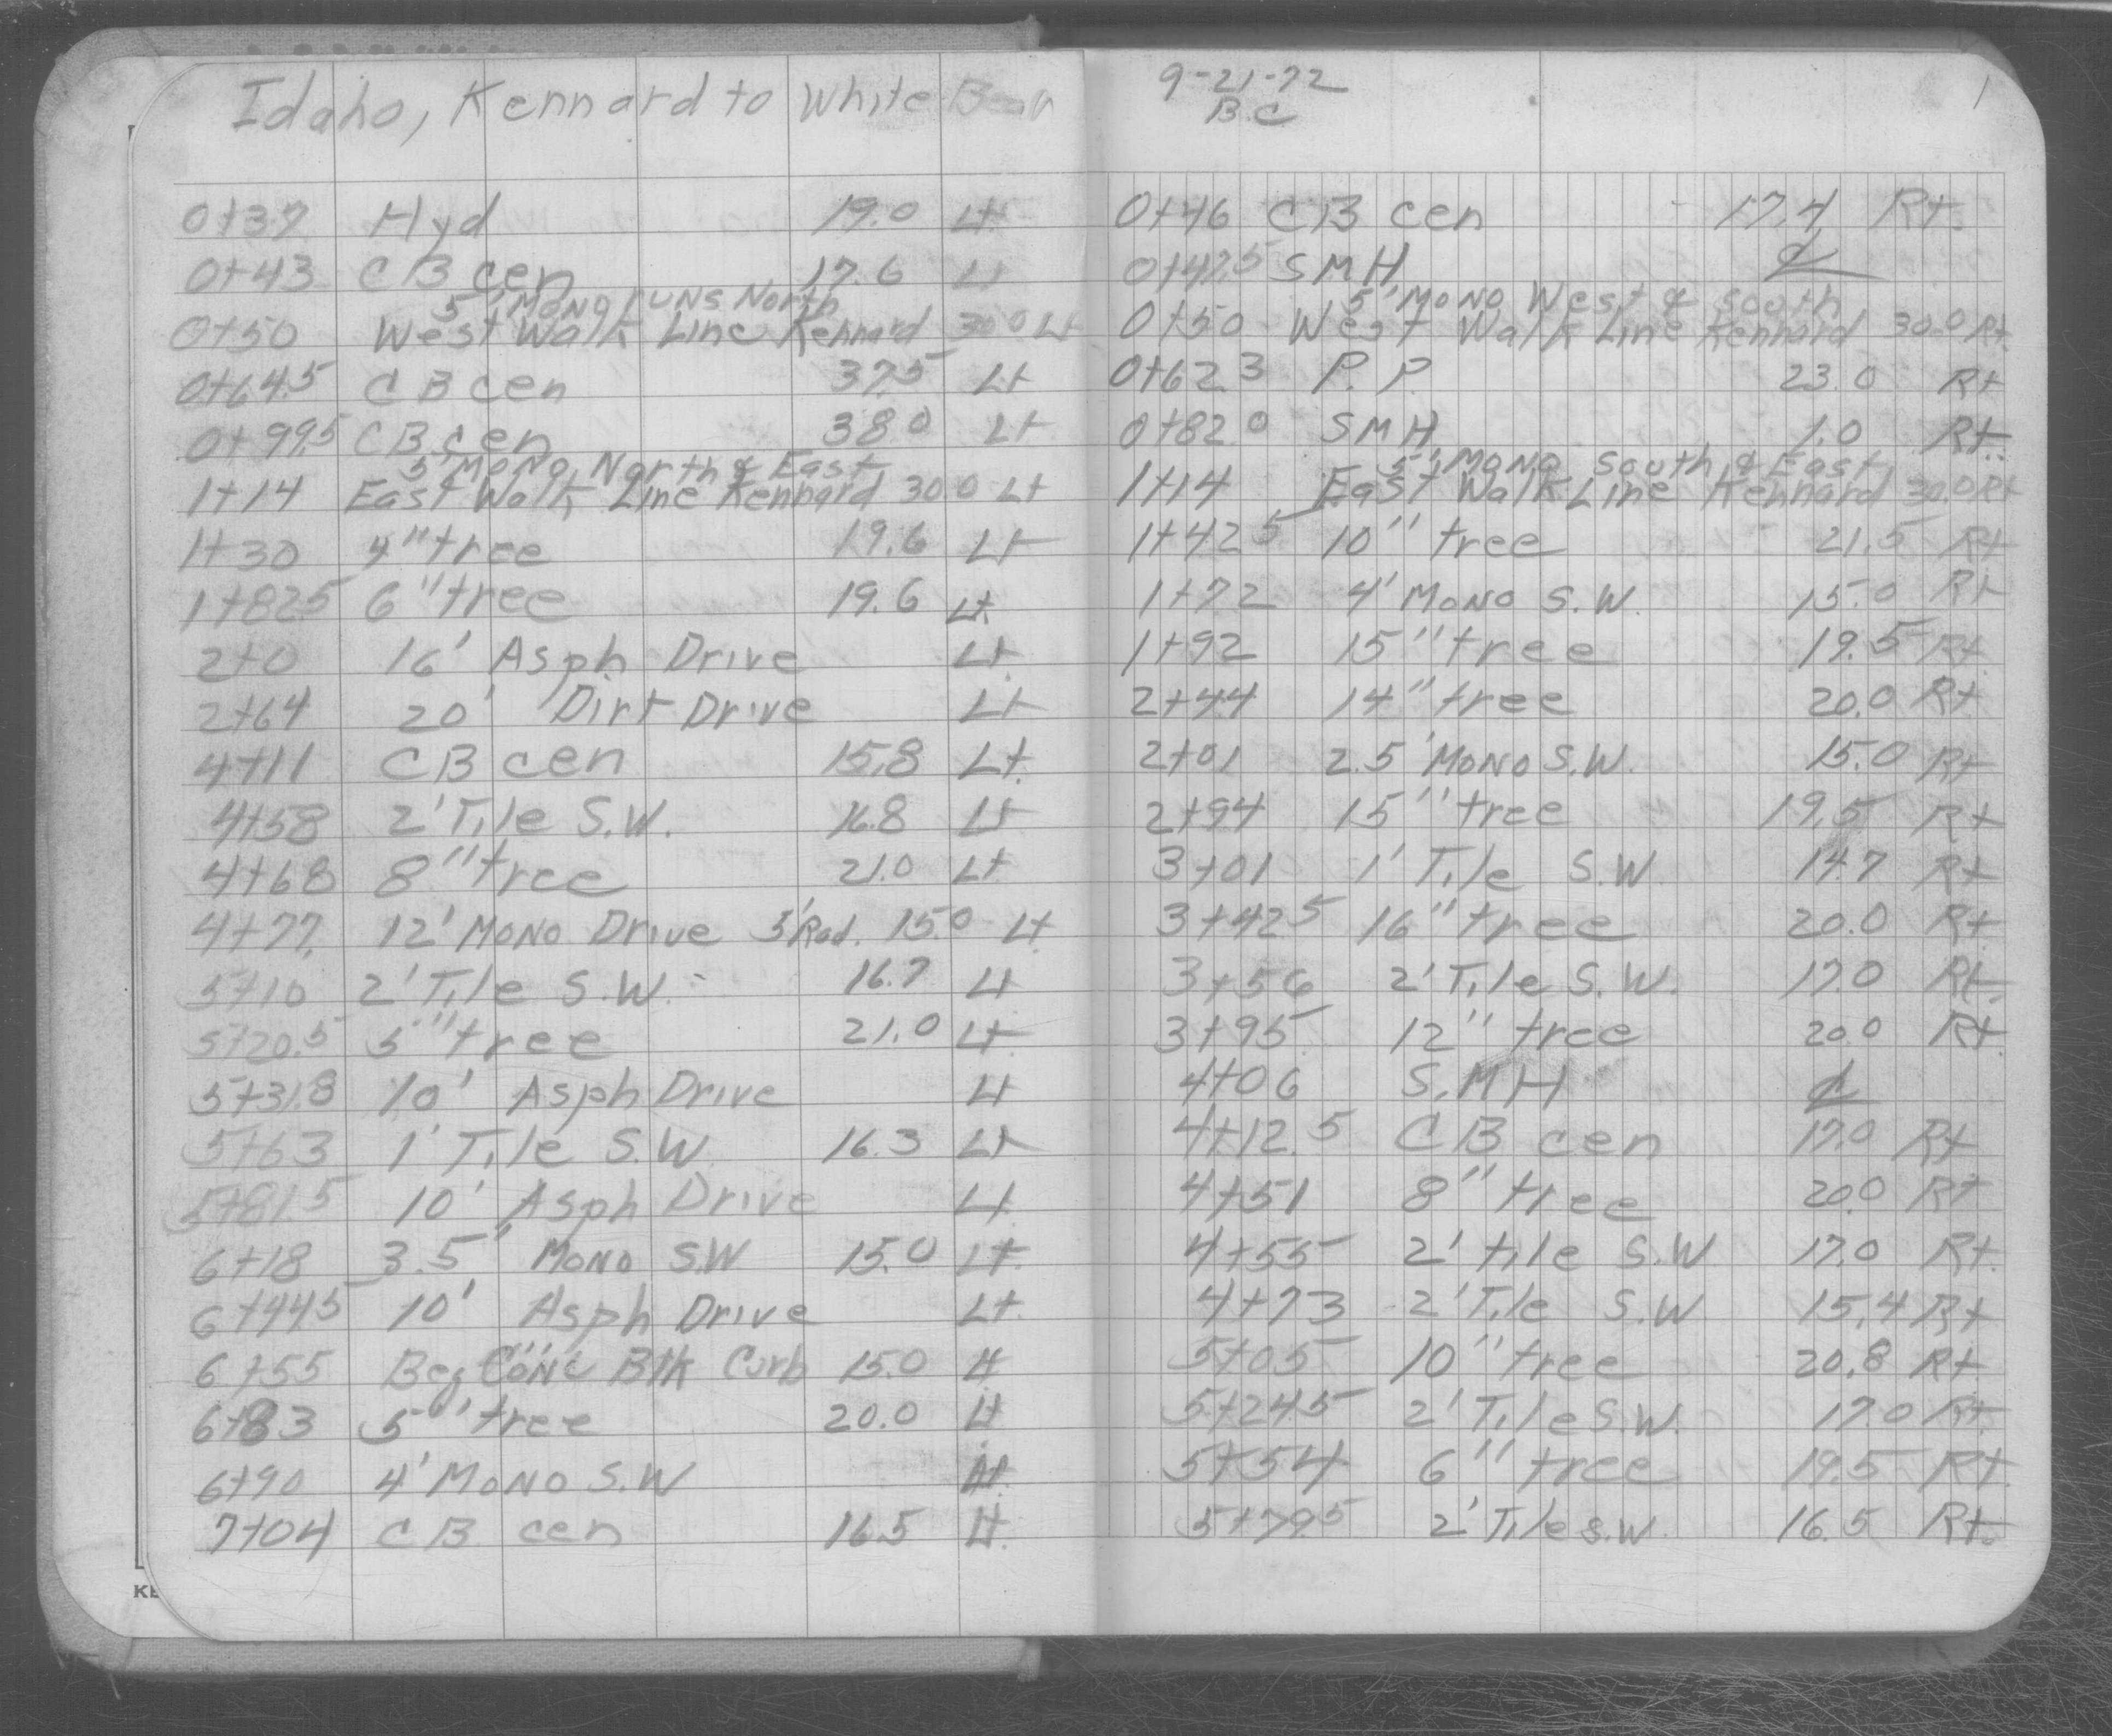 Idaho, Kennard to White Bear
0+37 Hyd 19.0 Lt
0+43 CB cen 17.6 Lt
5' Mono runs North
0+50 West Walk Line Kennard 30.0 Lt
0+64.5 CB cen 37.5 Lt
0+99.5 CB cen 38.0 Lt
5' Mono North & East
1+14 East Walk Line Kennard 30.0 Lt
1+30 4" tree 19.6 Lt
1+82.5 6" tree 19.6 Lt
2+0 16' Asph Drive Lt
2+64 20' Dirt Drive Lt
4+11 CB cen 15.8 Lt.
4+58 2' Tile S.W. 16.8 Lt
4+68 8" tree 21.0 Lt.
4+77. 12' Mono Drive 3' Rad. 15.0 Lt
5+10 2' Tile S.W. 16.7 Lt
5+20.5 5" tree 21.0 Lt
5+31.8 10' Asph Drive Lt
5+63 1' Tile S.W. 16.3 Lt
5+81.5 10' Asph Drive Lt.
6+18 3.5' Mono S.W 15.0 Lt.
6+44.5 10' Asph Drive Lt.
6+55 Beg Conc Blk Curb 15.0 Lt
6+83 5" tree 20.0 Lt
6+90 4' Mono S.W Lt.
7+04 CB cen 16.5 Lt.
9-21-72
B.C
1
0+46 CB cen 17.4 Rt.
0+47.5 SMH ℄
5' Mono West & South
0+50 West Walk Line Kennard 30.0 Rt.
0+62.3 P.P. 23.0 Rt
0+82.0 SMH 1.0 Rt.
5' Mono South & East
1+14 East Walk Line Kennard 30.0 Rt
1+42.5 10" tree 21.5 Rt
1+72 4' Mono S.W. 15.0 Rt
1+92 15" tree 19.5 Rt.
2+44 14" tree 20.0 Rt
2+01 2.5' Mono S.W. 15.0 Rt
2+94 15" tree 19.5 Rt
3+01 1' Tile S.W 14.7 Rt
3+42.5 16" tree 20.0 Rt
3+56 2' Tile S.W. 17.0 Rt.
3+95 12" tree 20.0 Rt.
4+06 S.MH ℄
4+12.5 CB cen 17.0 Rt
4+51 8" tree 20.0 Rt
4+55 2' tile S.W 17.0 Rt.
4+73 2' Tile S.W 15.4 Rt
5+05 10" tree 20.8 Rt.
5+24.5 2' Tile S.W. 17.0 Rt.
5+54 6" tree 19.5 Rt.
5+79.5 2' Tile s.w. 16.5 Rt.